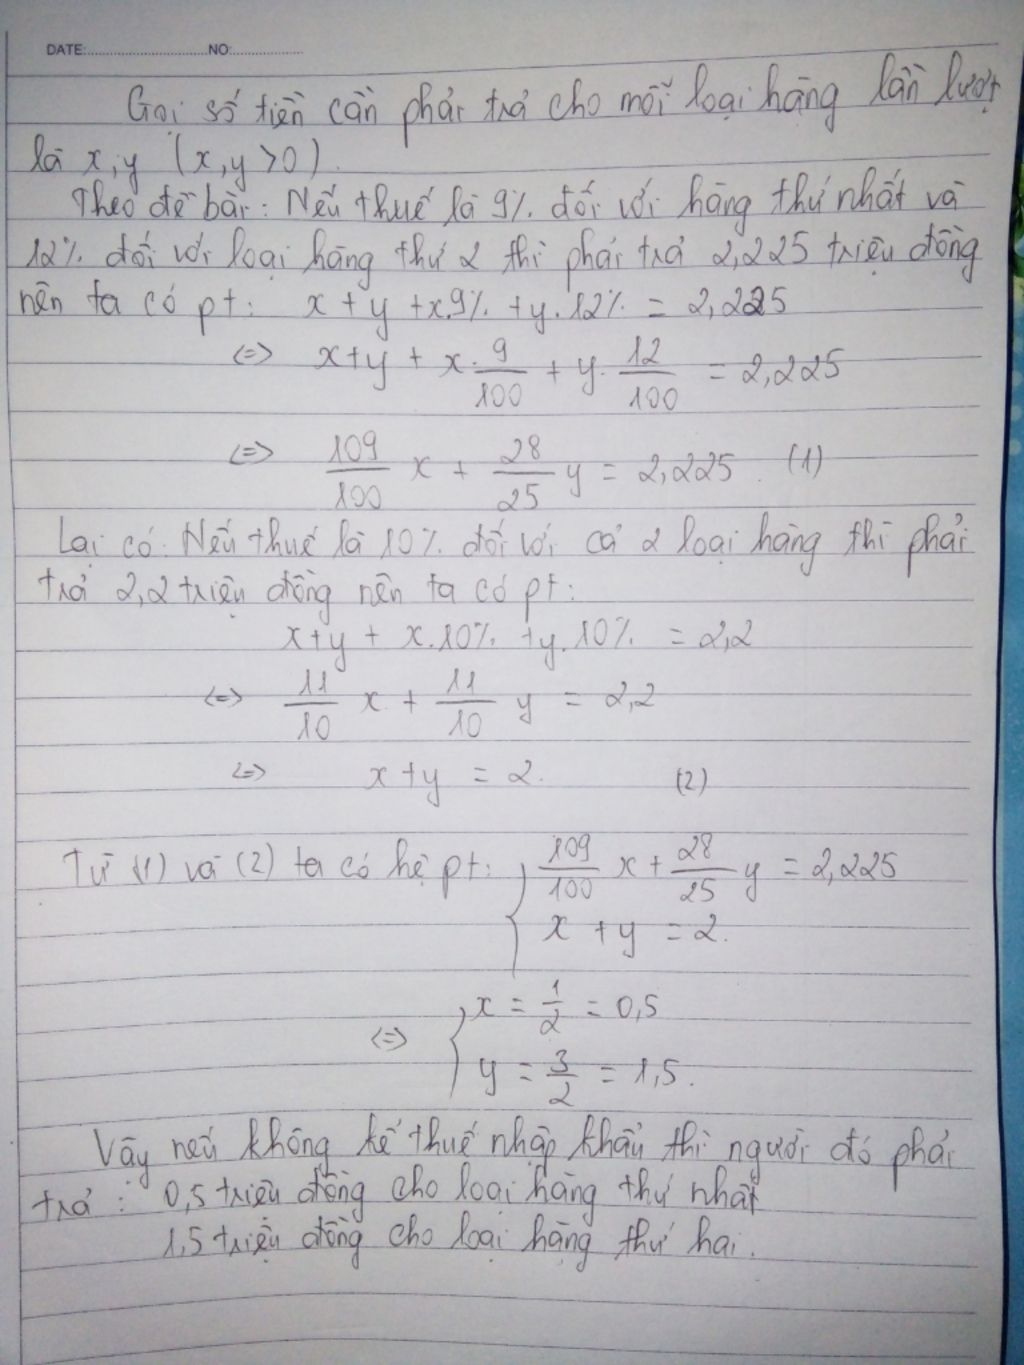 DATE: NO:
Gọi số tiền cần phải trả cho mỗi loại hàng lần lượt
là x, y (x, y > 0).
Theo đề bài: Nếu thuế là 9% đối với hàng thứ nhất và
12% đối với loại hàng thứ 2 thì phải trả 2,225 triệu đồng
nên ta có pt: x + y + x.9% + y.12% = 2,225
<=> x + y + x. 9/100 + y. 12/100 = 2,225
<=> 109/100 x + 28/25 y = 2,225. (1)
Lại có: Nếu thuế là 10% đối với cả 2 loại hàng thì phải
trả 2,2 triệu đồng nên ta có pt:
x + y + x.10% + y.10% = 2,2
<=> 11/10 x + 11/10 y = 2,2
<=> x + y = 2. (2)
Từ (1) và (2) ta có hệ pt: { 109/100 x + 28/25 y = 2,225
x + y = 2.
<=> { x = 1/2 = 0,5
y = 3/2 = 1,5.
Vậy nếu không kể thuế nhập khẩu thì người đó phải
trả: 0,5 triệu đồng cho loại hàng thứ nhất
1,5 triệu đồng cho loại hàng thứ hai.